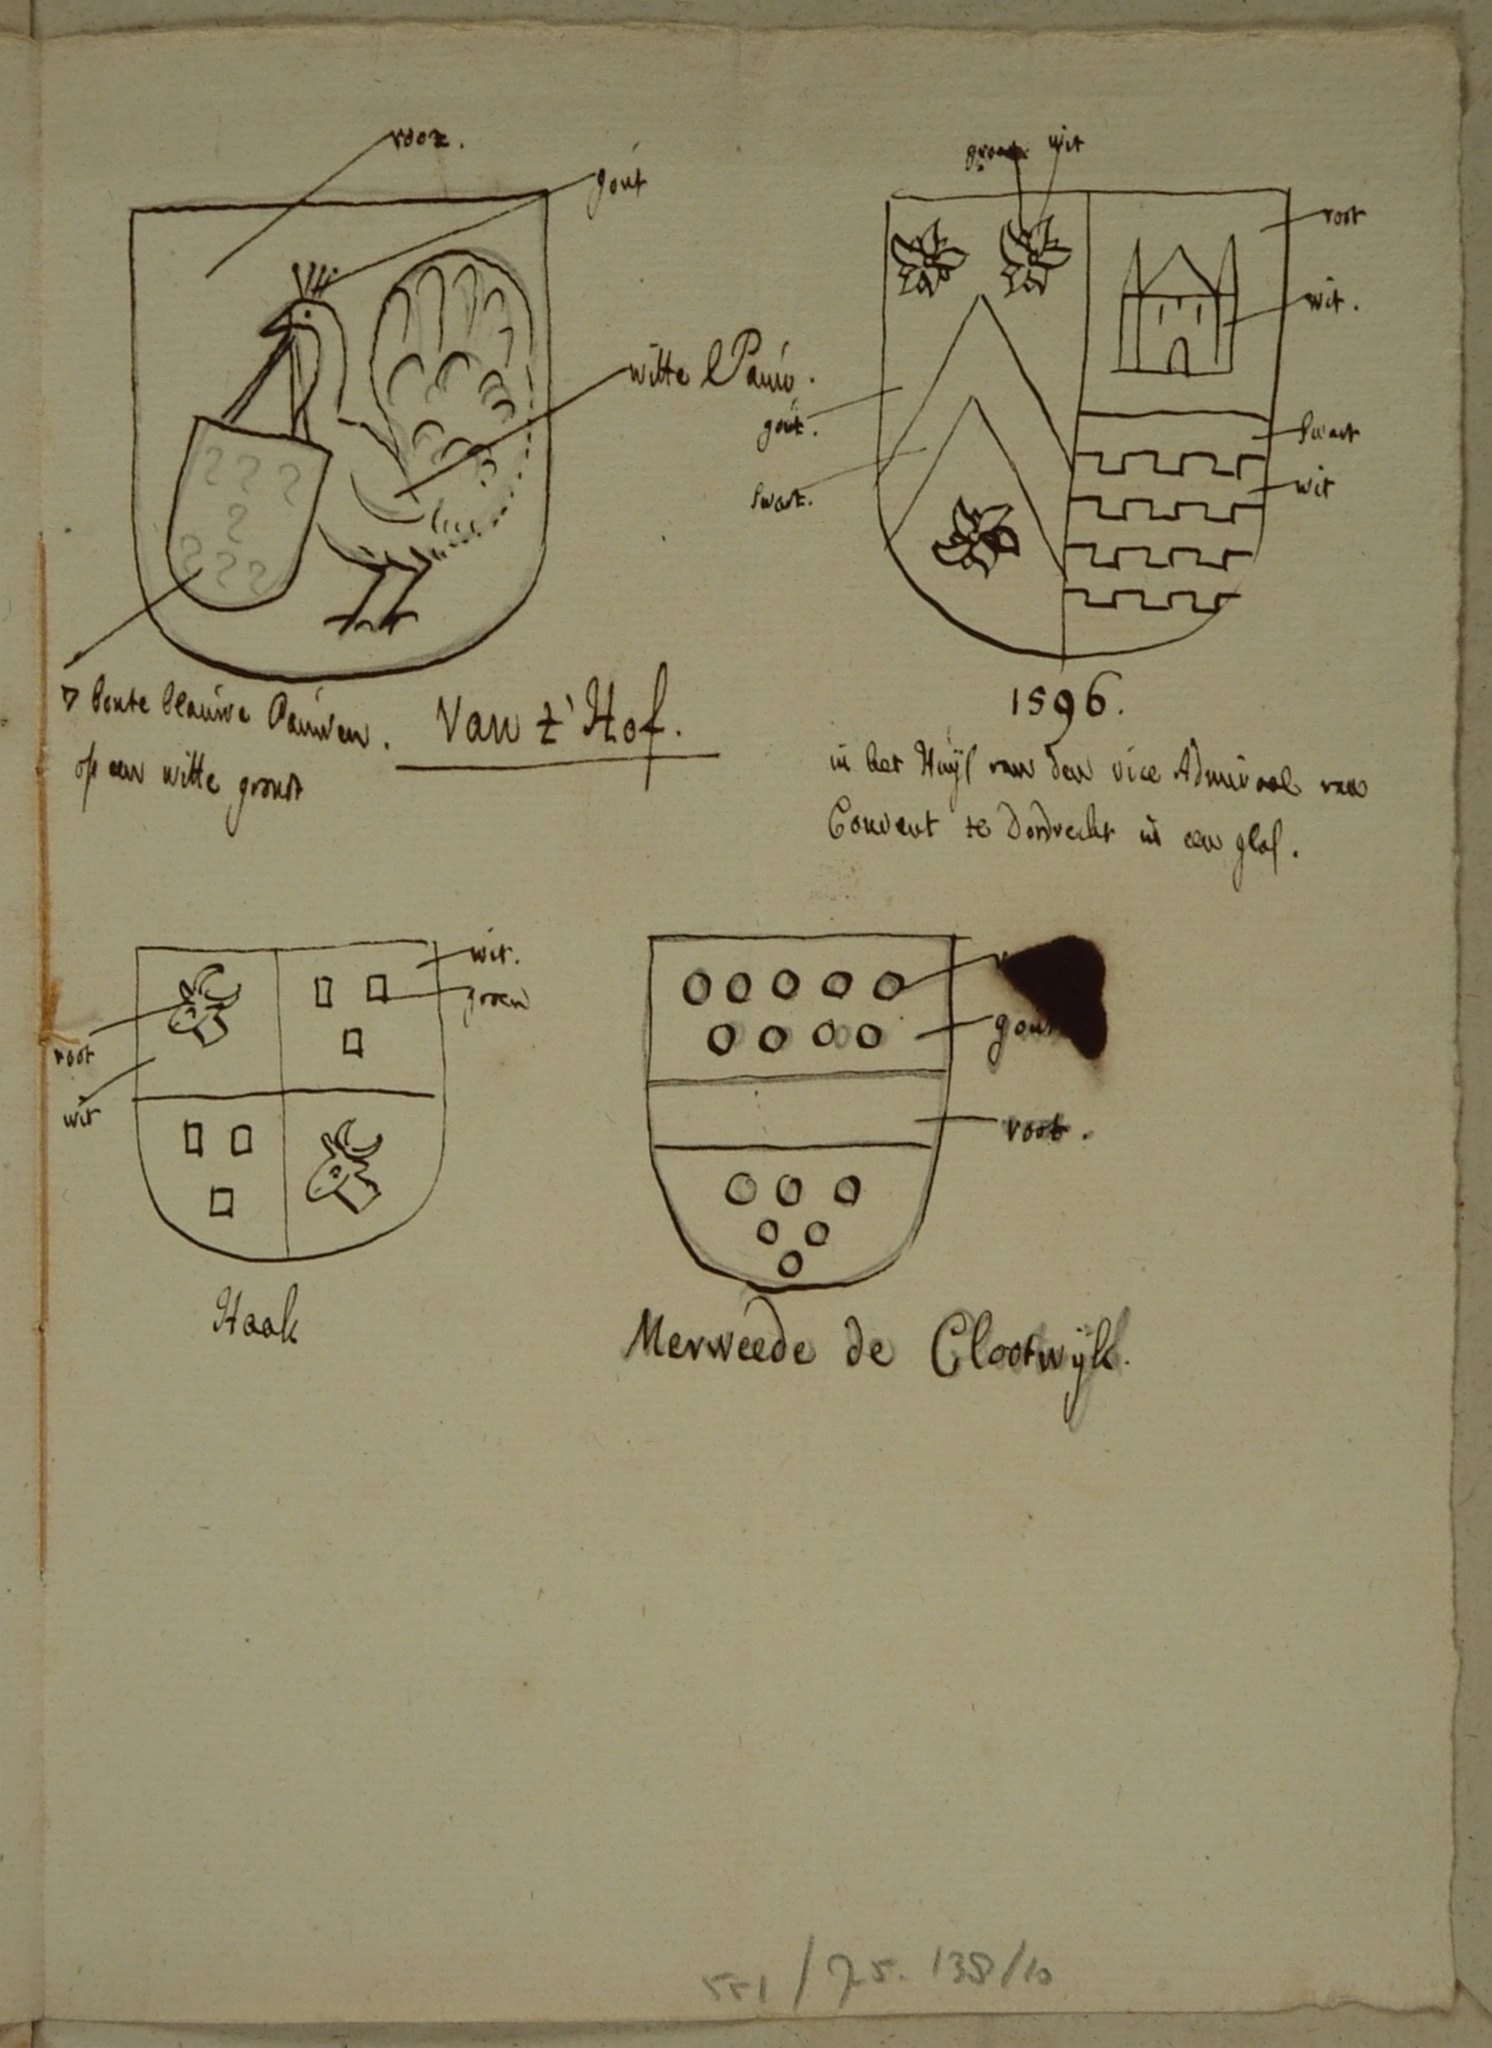 root.
gout
witte Pauw.
7 bonte blauwe Pauwen.
op een witte gront
Van t' Hof.
groen wit
root
wit.
gout.
swart.
swart
wit
1596.
in het Huijs van den vice Admiraal van
Convent te Dordrecht in een glas.
wit.
groen
root
wit
Haak
gout
root.
Merweede de Clootwijk.
551 / 75. 138/10